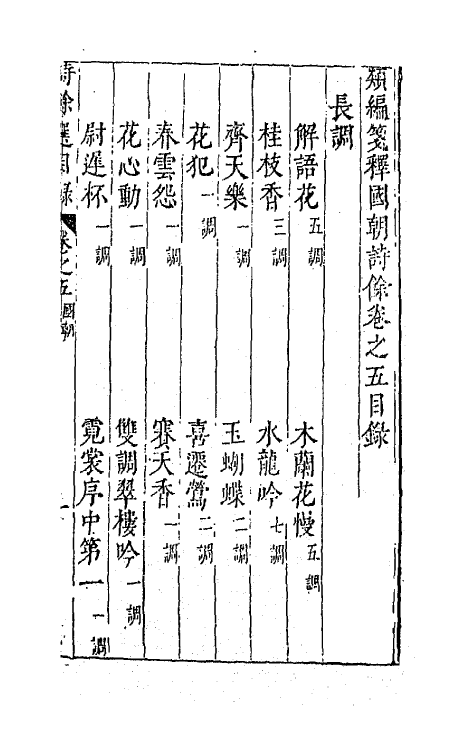 類編箋釋國朝詩餘卷之五目錄
長調
解語花五調 木蘭花慢五調
桂枝香三調 水龍吟七調
齊天樂一調 玉蝴蝶二調
花犯一調 喜遷鶯二調
春雲怨一調 賽天香一調
花心動一調 雙調翠樓吟一調
尉遲杯一調 霓裳序中第一一調
詩餘選目錄 卷之五國朝 一